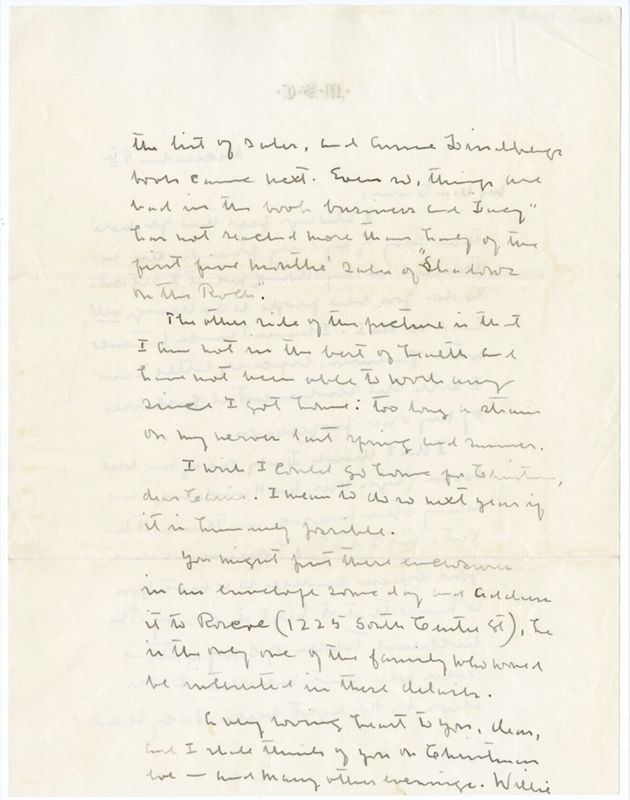 the list of sales, and Anne Lindbergh's
book came next. Even so, things are
bad in the book business and Lucy"
has not reached more than half of the
first five months' sales of "Shadows
on the Rock".
The other side of the picture is that
I am not in the best of health and
have not been able to work any
since I got home: too long a strain
on my nerves last spring and summer.
I wish I could go home for Christmas,
dear Carrie. I mean to do so next year if
it is humanly possible.
You might put these enclosures
in an envelope some day and address
it to Roscoe (1225 South Center St), he
is the only one of the family who would
be interested in these details.
A very loving heart to you, dear,
and I shall think of you on Christmas
eve — and many other evenings. Willie